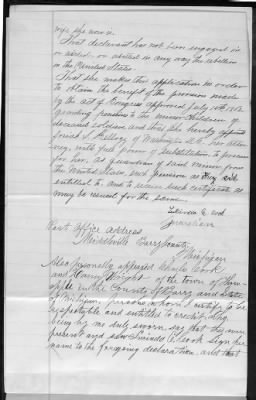 wife she now is.
That declarant has not been engaged in
or aided or abetted in any way the rebellion
in the United States.
That she makes this application in order
to obtain the benefit of the provision made
by the act of Congress approved July 14th 1862
granting pensions to the minor children of
deceased soldiers and that she hereby appoints
Josiah of Washington D.C. her attor
ney, with full power of substitution to procure
for her, as guardian of said minors from
the United States, such pension as they are
entitled to and to receive such certificate as
may be issued for the same.
Guardian
Post Office address
Middleville Barry County
Michigan
Also personally appeared Charles Cook
and of the town of Thorn
apple in the County of Barry and State
of Michigan, persons whom I certify to be
respectable and entitled to credit. They
being by me duly sworn say that they were
present and saw Cook sign her
name to the foregoing declaration and that